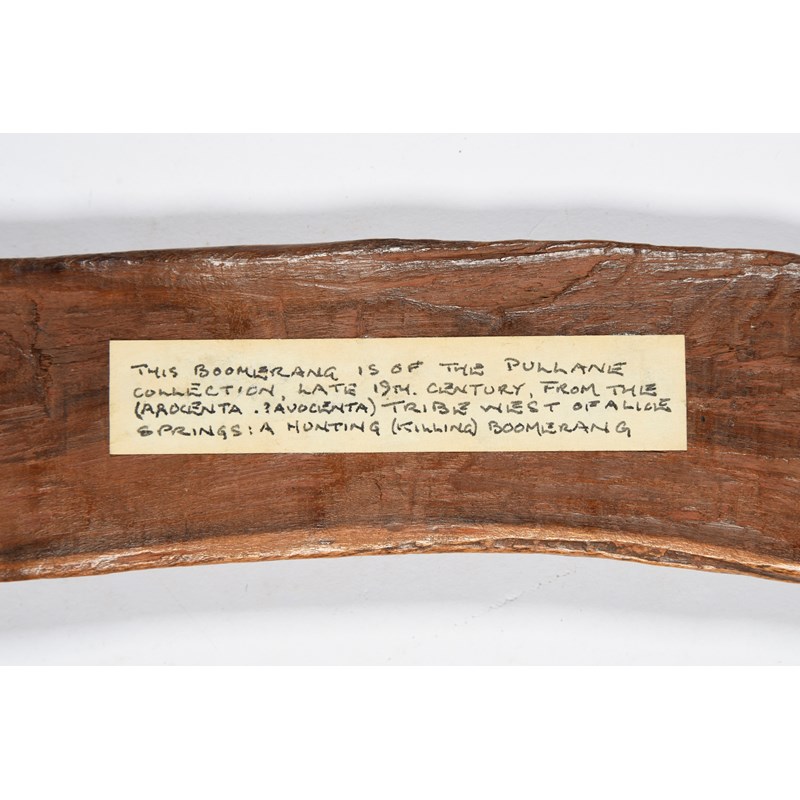 THIS BOOMERANG IS OF THE PULLANE
COLLECTION, LATE 19TH. CENTURY, FROM THE
(AROCENTA .?AVOCENTA) TRIBE WEST OF ALICE
SPRINGS: A HUNTING (KILLING) BOOMERANG